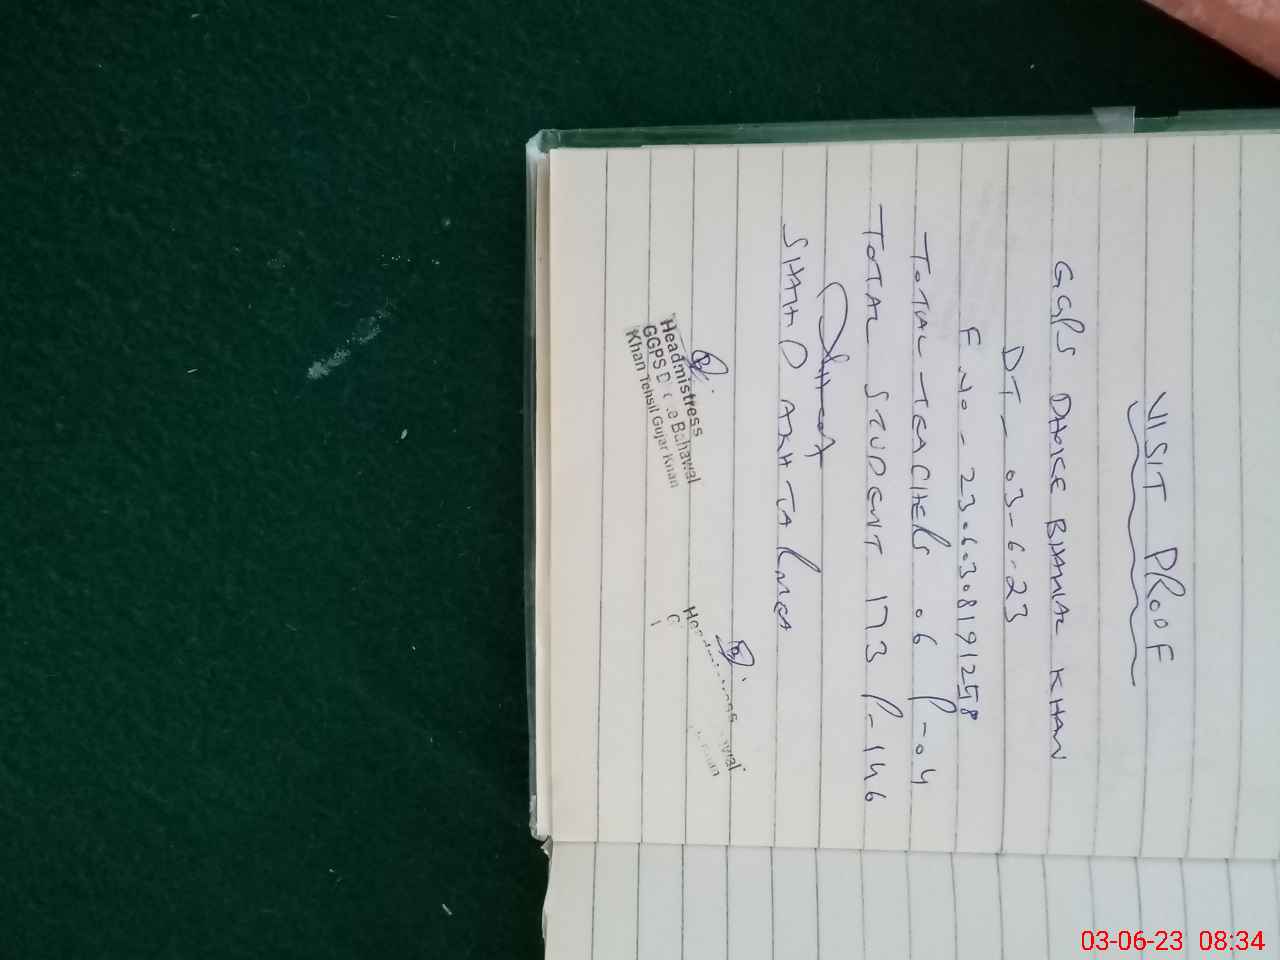 VISIT PROOF
GGPS DHOKE BHAWAL KHAN
DT - 03-6-23
F No - 23060308191258
TOTAL TEACHERS 06 P-04
TOTAL STUDENT 173 P-146
SHAHD AKHTAR
Headmistress
GGPS D e Bahawal
Khan Tehsil Gujar Khan
03-06-23 08:34